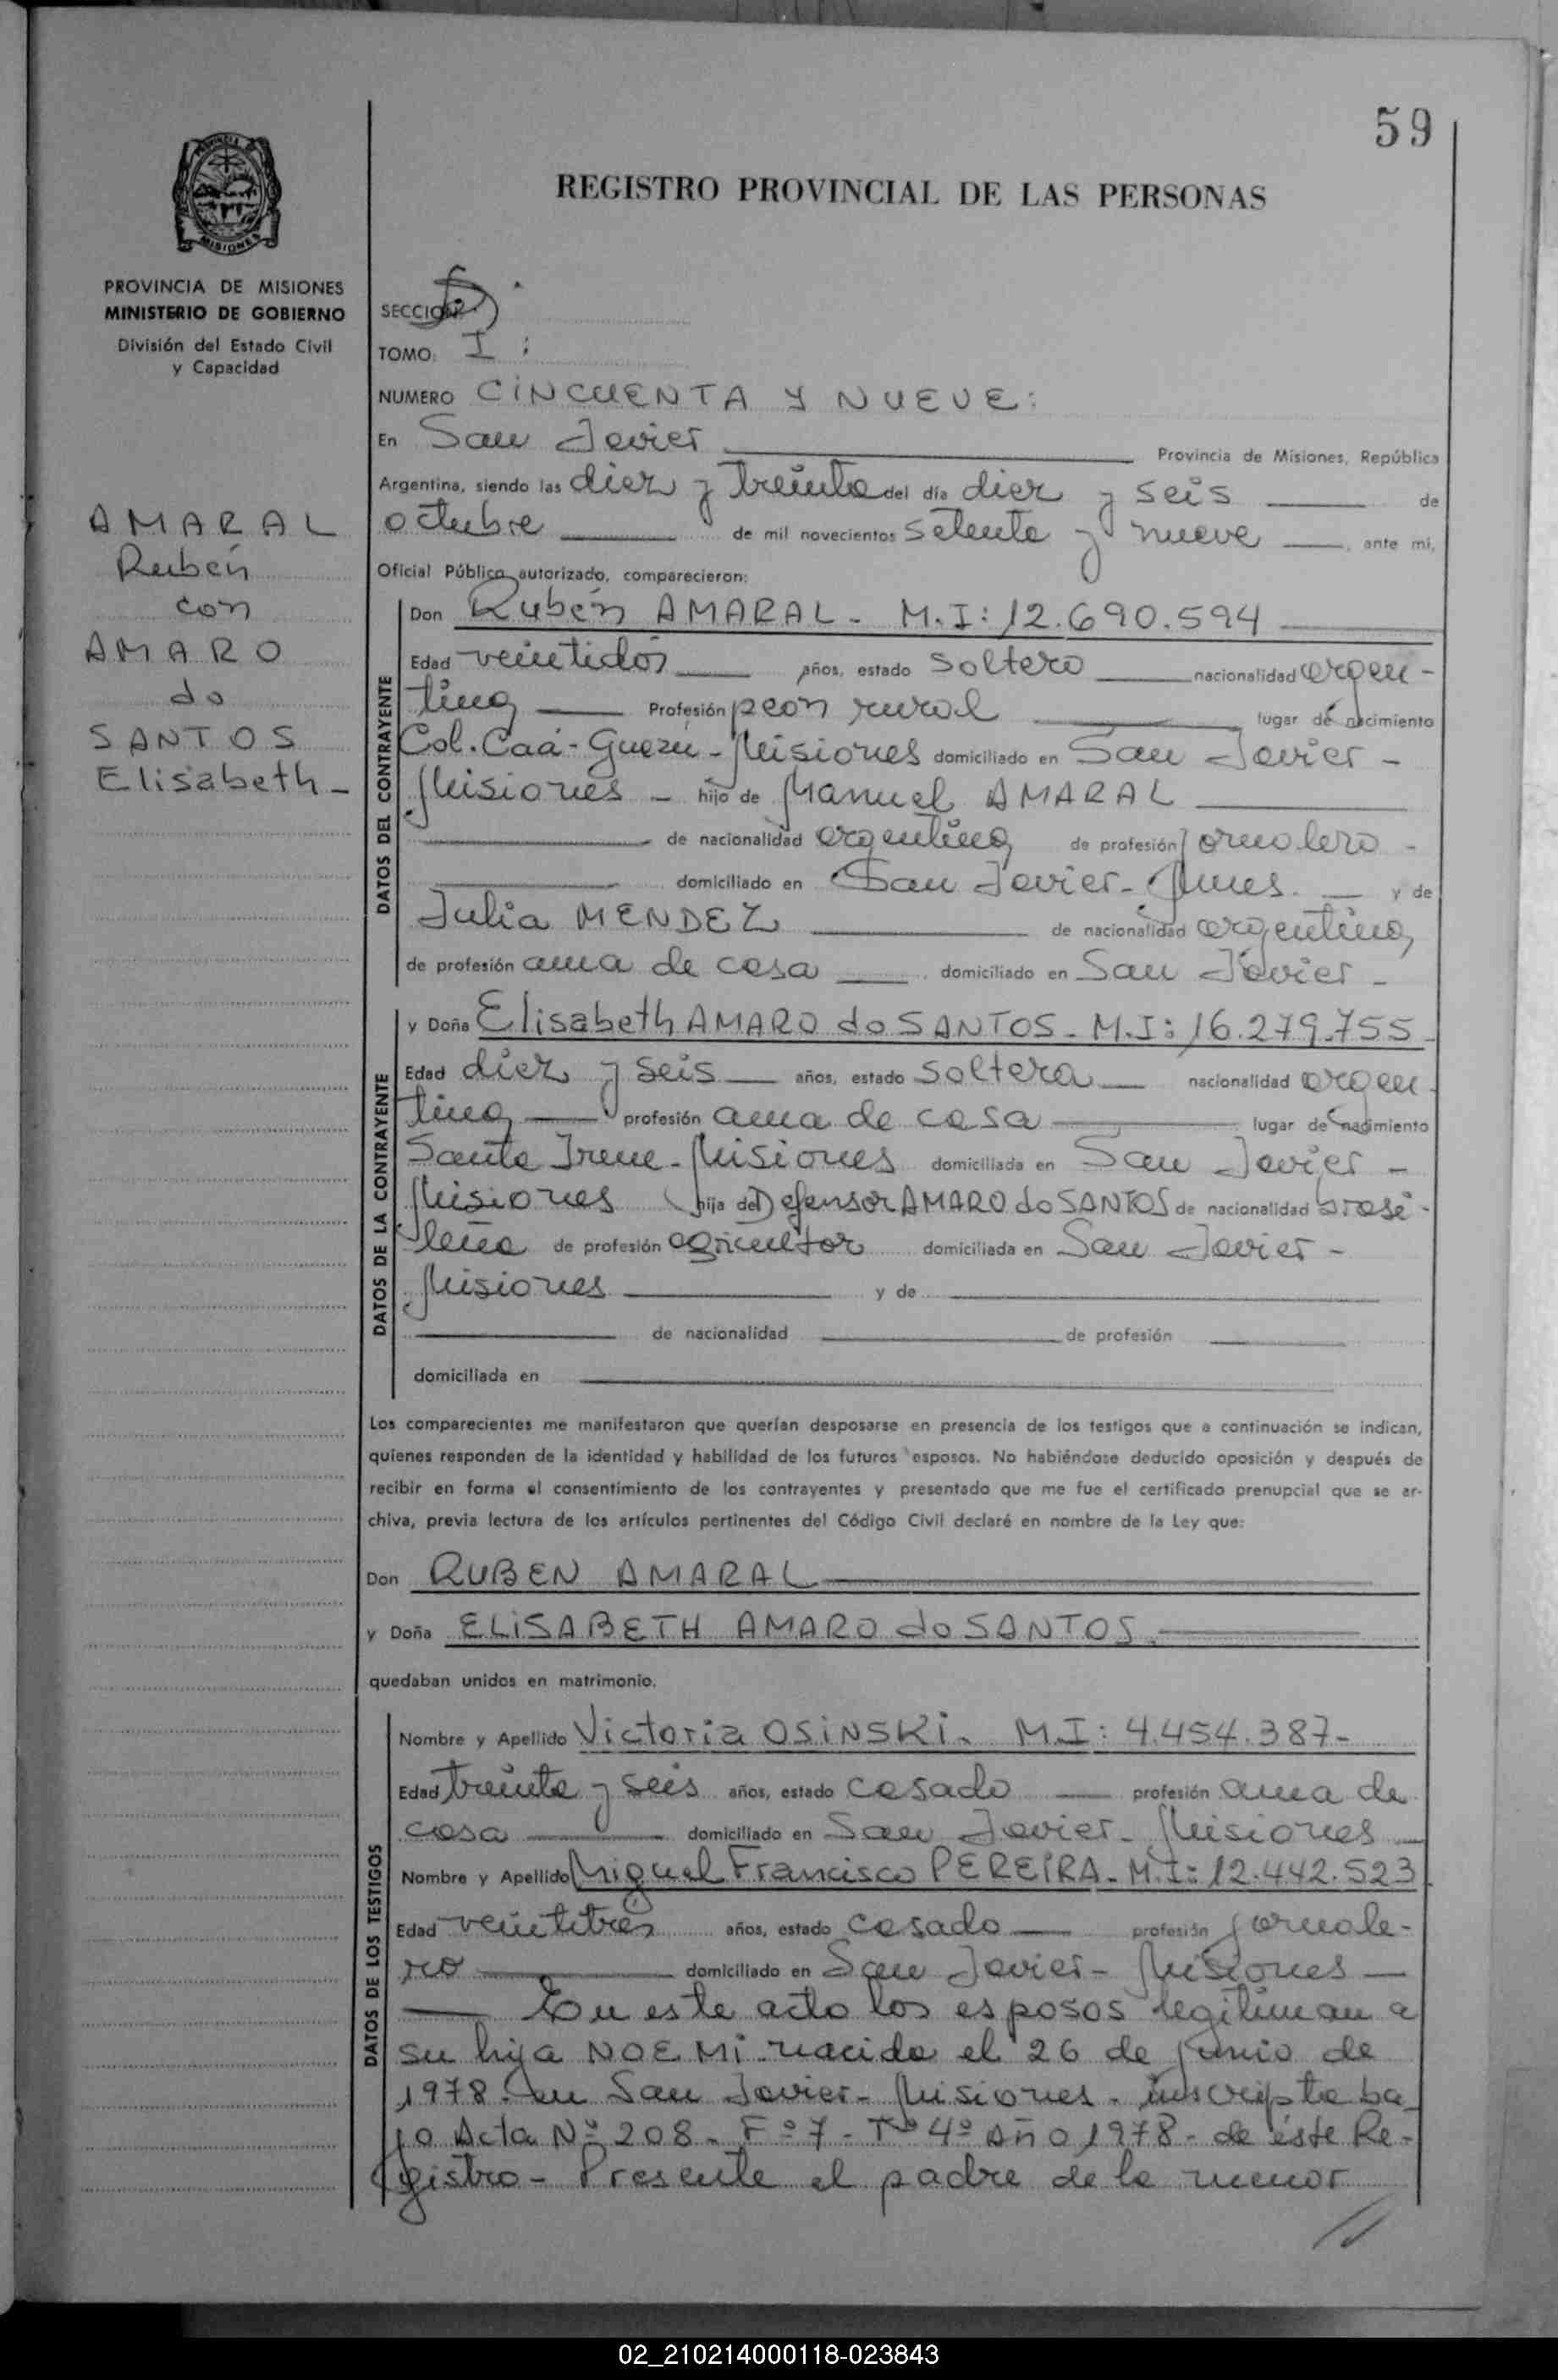 59
REGISTRO PROVINCIAL DE LAS PERSONAS
MISIONES
PROVINCIA DE MISIONES
MINISTERIO DE GOBIERNO
División del Estado Civil
y Capacidad
AMARAL
Rubén
con
AMARO
do
SANTOS
Elisabeth -
SECCION
TOMO: I :
NUMERO CINCUENTA Y NUEVE:
En San Javier Provincia de Misiones, República
Argentina, siendo las diez y treinta del día diez y seis de
octubre de mil novecientos setenta y nueve , ante mí,
Oficial Público autorizado, comparecieron:
DATOS DEL CONTRAYENTE
Don Rubén AMARAL - M.I: 12.690.594
Edad veintidós años, estado soltero nacionalidad argen -
tina Profesión peón rural lugar de nacimiento
Col. Caá - Guazú - Misiones domiciliado en San Javier -
Misiones - hijo de Manuel AMARAL
de nacionalidad argentina de profesión jornalero -
domiciliado en San Javier - Mnes. y de
Julia MENDEZ de nacionalidad argentina,
de profesión ama de casa domiciliado en San Javier -
DATOS DE LA CONTRAYENTE
y Doña Elisabeth AMARO do SANTOS - M.I: 16.279.755 -
Edad diez y seis años, estado soltera nacionalidad argen -
tina profesión ama de casa lugar de nacimiento
Santa Irene - Misiones domiciliada en San Javier -
Misiones hija de Defensor AMARO do SANTOS de nacionalidad brasi -
leña de profesión agricultor domiciliada en San Javier -
Misiones y de
de nacionalidad de profesión
domiciliada en
Los comparecientes me manifestaron que querían desposarse en presencia de los testigos que a continuación se indican,
quienes responden de la identidad y habilidad de los futuros esposos. No habiéndose deducido oposición y después de
recibir en forma el consentimiento de los contrayentes y presentado que me fue el certificado prenupcial que se ar-
chiva, previa lectura de los artículos pertinentes del Código Civil declaré en nombre de la Ley que:
Don RUBEN AMARAL
y Doña ELISABETH AMARO do SANTOS.
quedaban unidos en matrimonio.
DATOS DE LOS TESTIGOS
Nombre y Apellido Victoria OSINSKI - M.I: 4.454.387-
Edad treinta y seis años, estado casado profesión ama de
casa domiciliado en San Javier - Misiones
Nombre y Apellido Miguel Francisco PEREIRA - M.I: 12.442.523
Edad veintitrés años, estado casado profesión jornale-
ro domiciliado en San Javier - Misiones
En este acto los esposos legitiman a
su hija NOEMI nacida el 26 de junio de
1978 en San Javier - Misiones - inscripta ba_
jo Acta Nº 208 - Fº 7 - Tº 4º Año 1978 - de éste Re-
gistro - Presente el padre de la menor
//
02_210214000118-023843